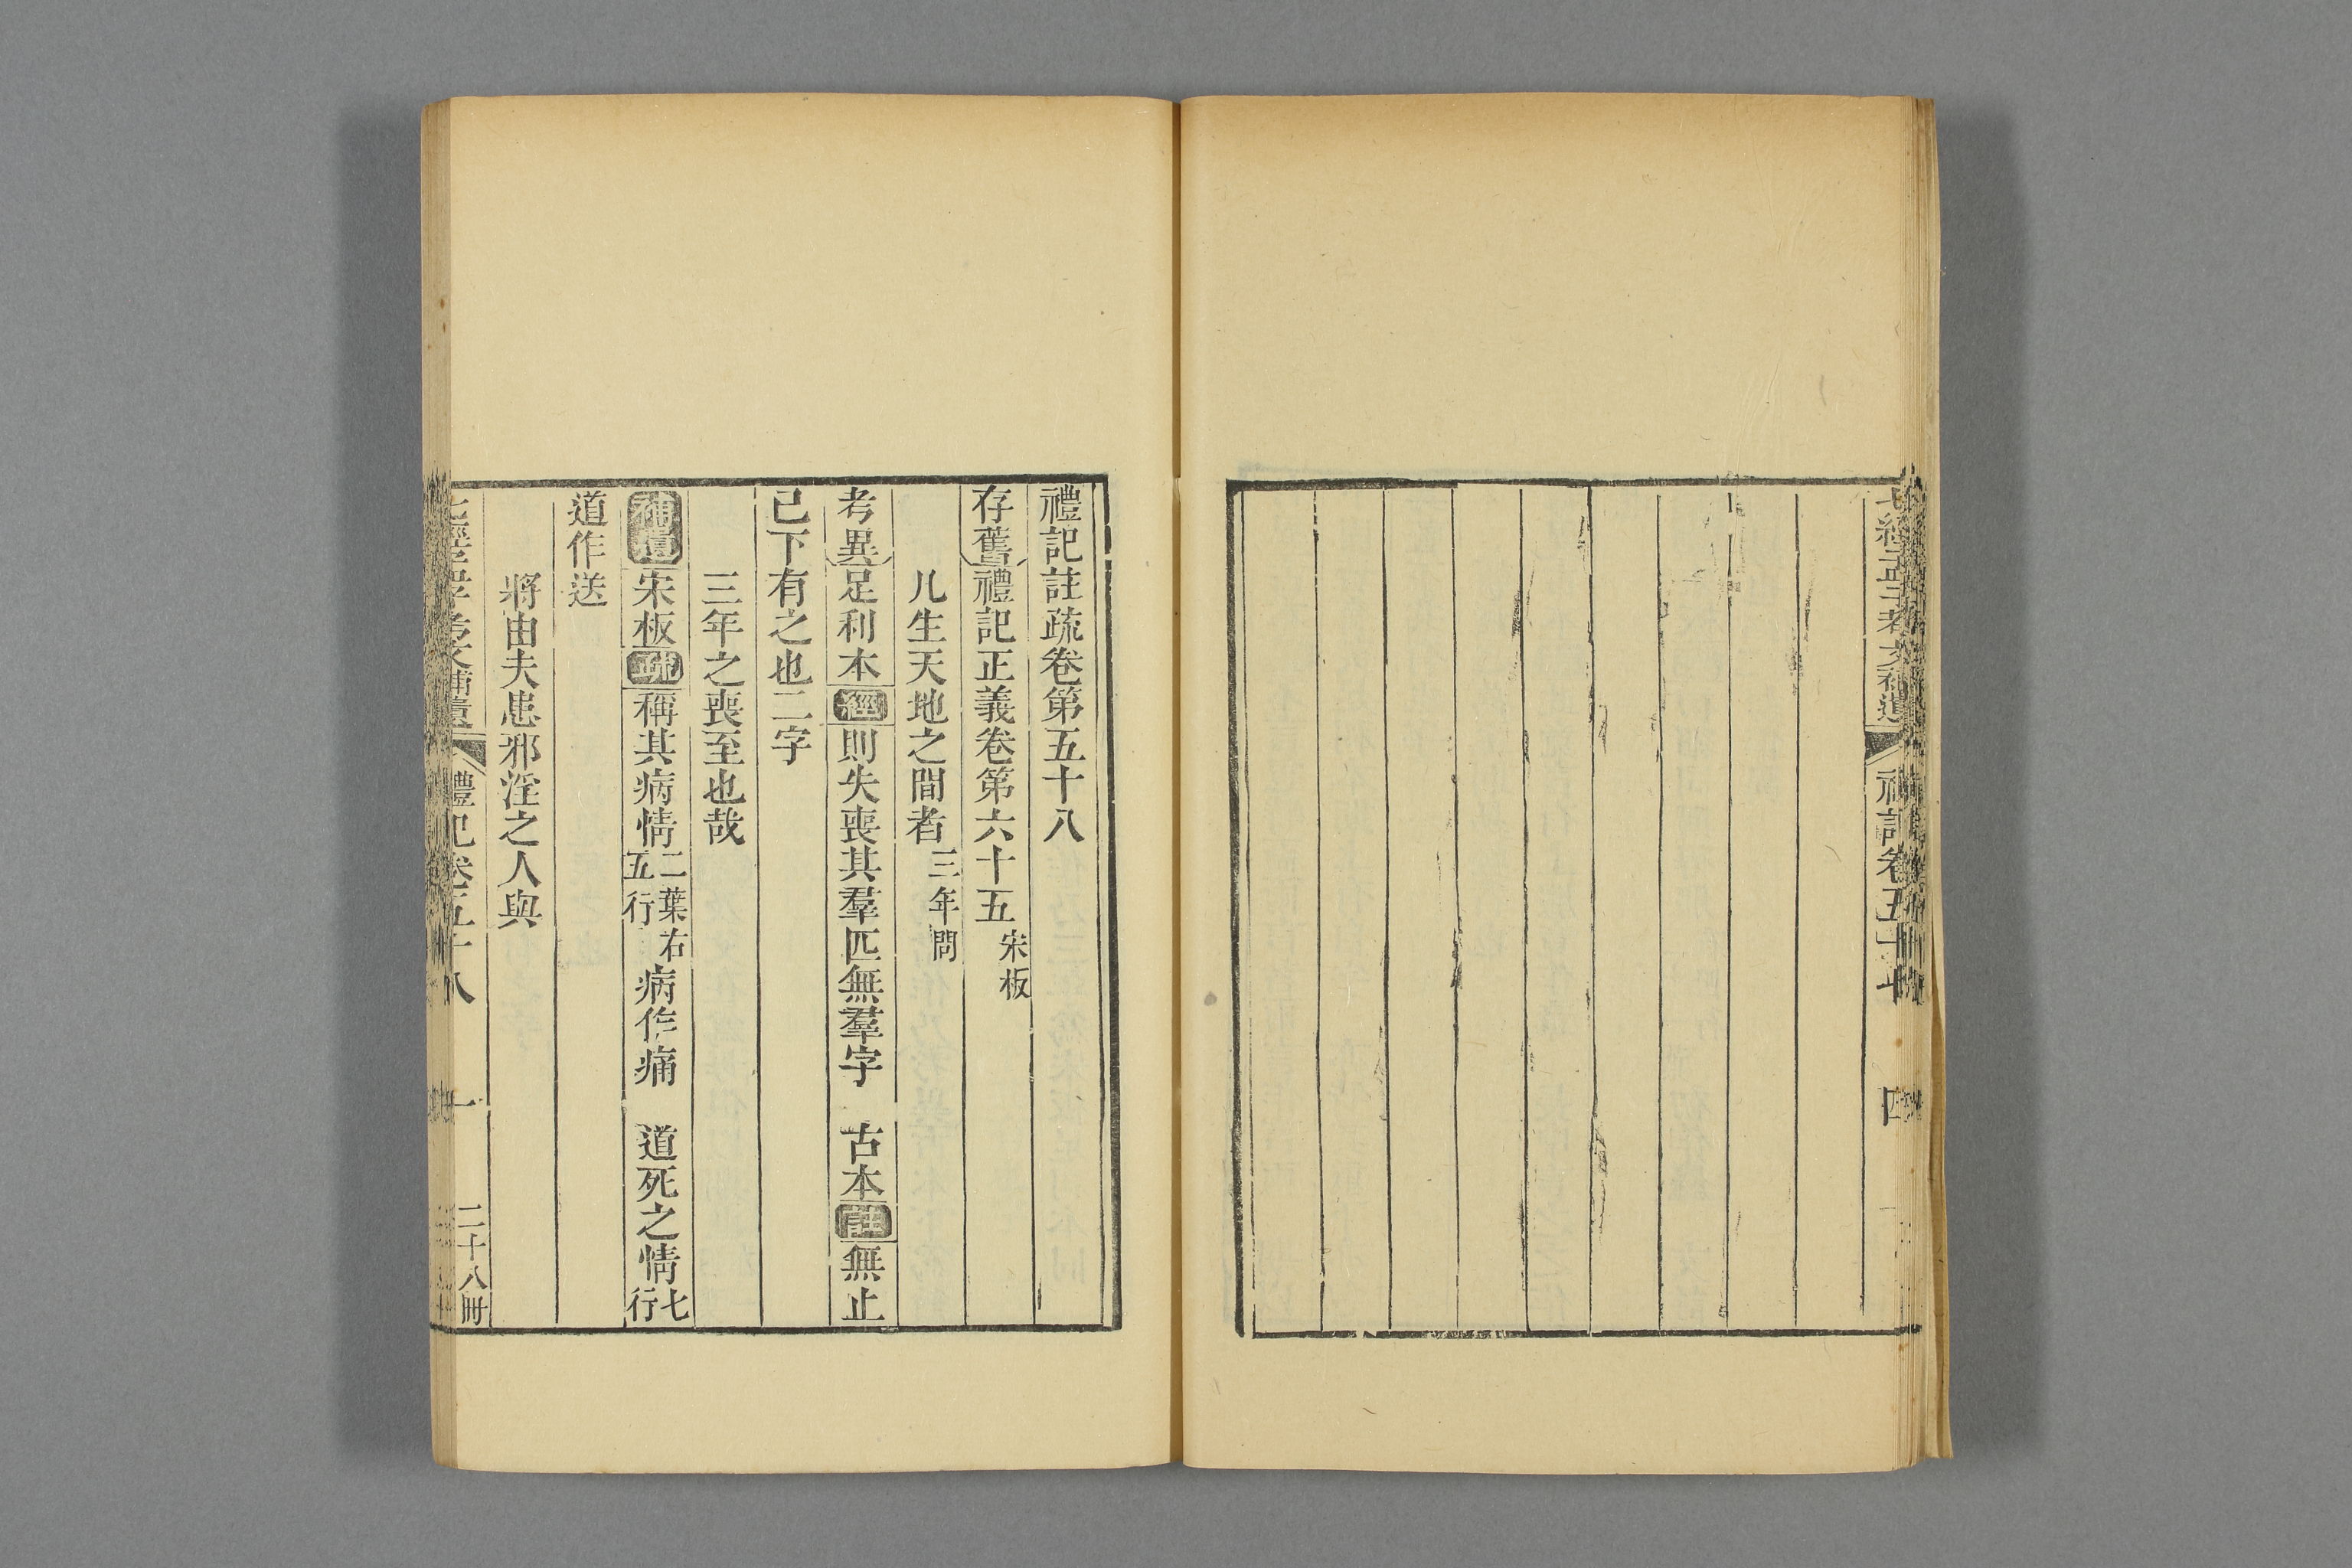 七經孟子考文補遺 禮記卷五十七 四
禮記註疏卷第五十八
存舊禮記正義卷第六十五宋板
凡生天地之間者三年問
考異足利本經則失喪其羣匹無羣字 古本註無止
已下有之也二字
三年之喪至也哉
補遺宋板疏稱其病情二葉右五行病作痛 道死之情七行
道作送
將由夫患邪淫之人與
七經孟子考文補遺 禮記卷五十八 一 二十八冊